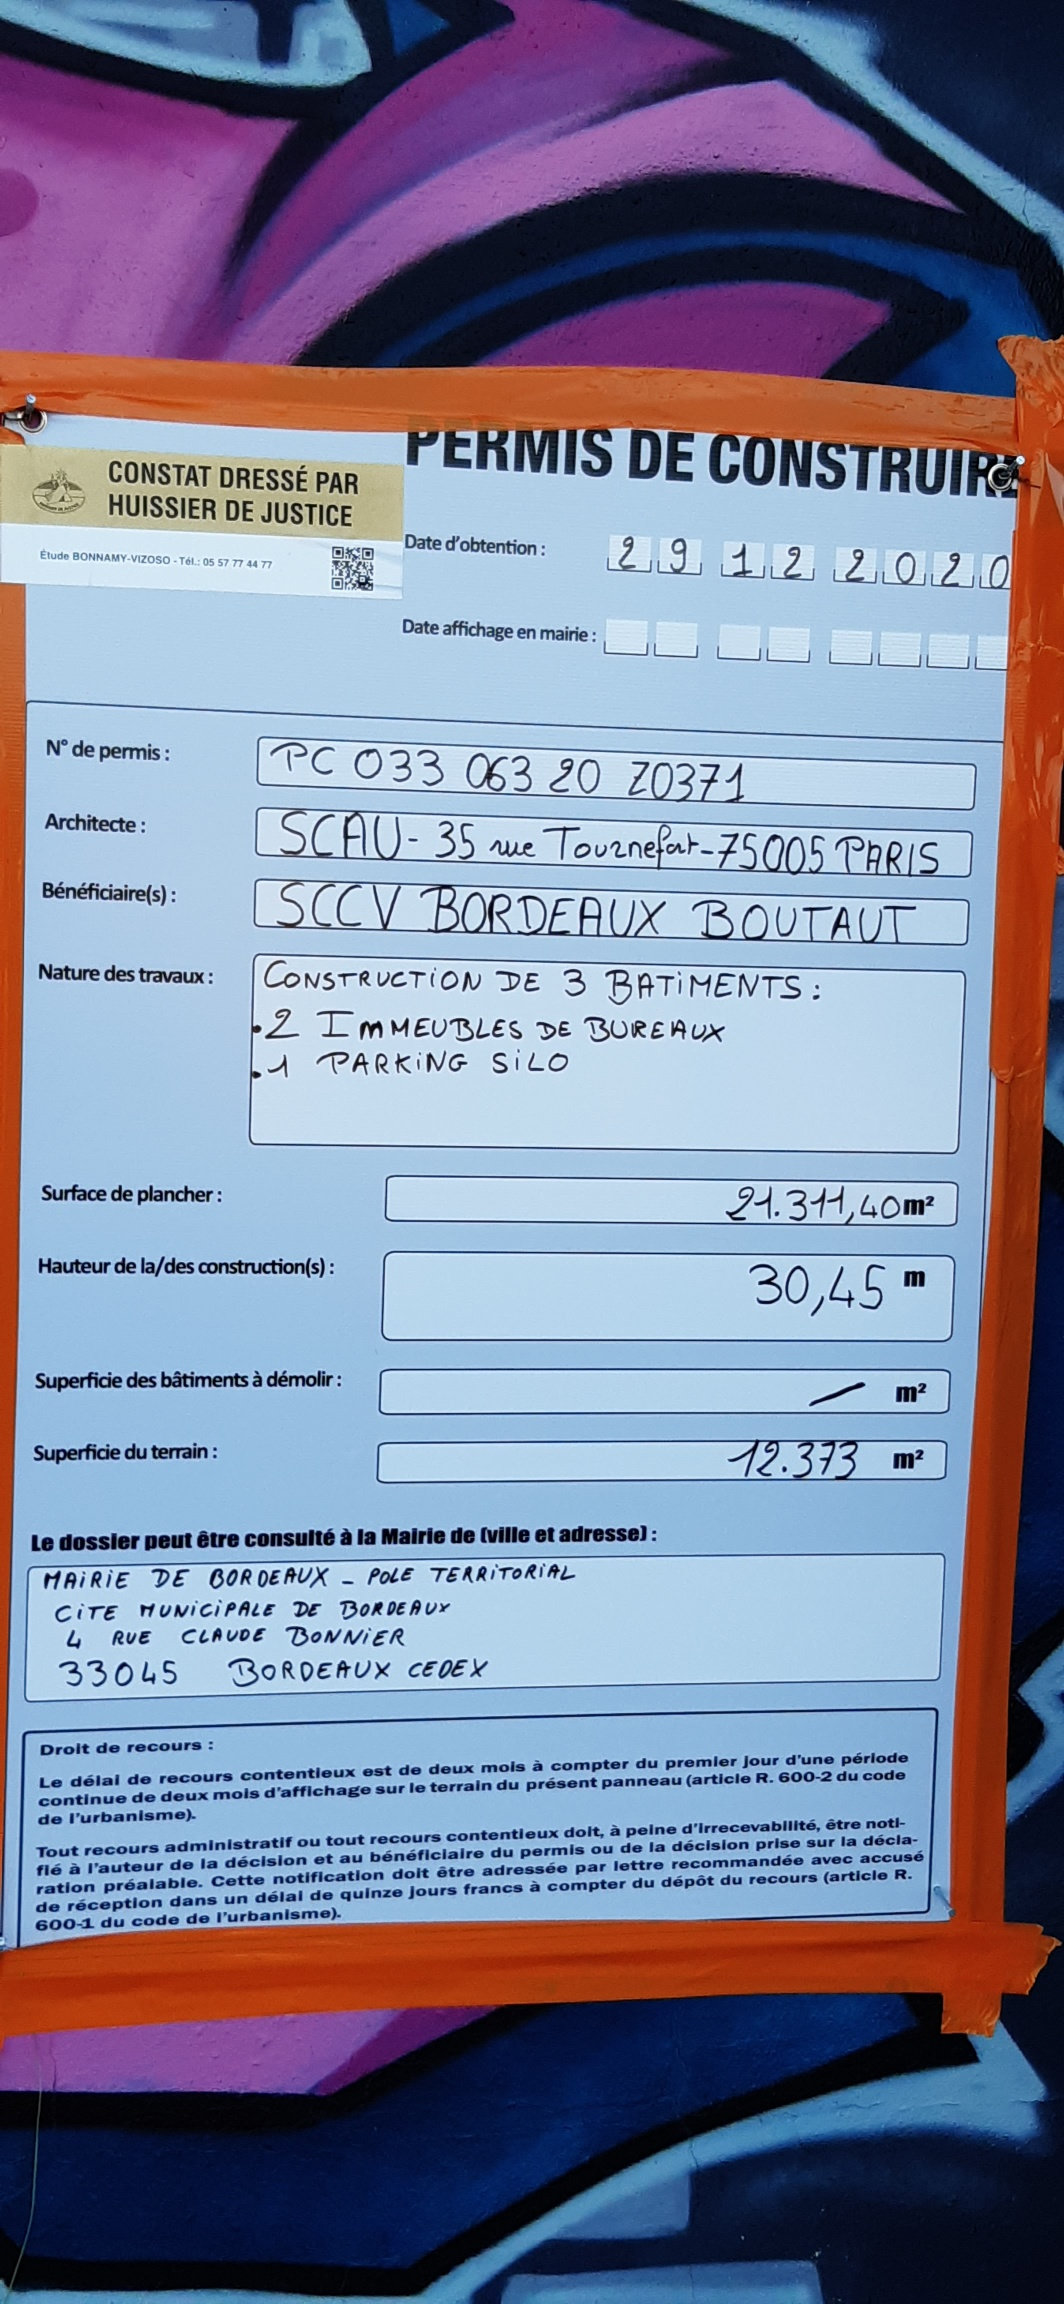 PERMIS DE CONSTRUIRE
CONSTAT DRESSÉ PAR
HUISSIER DE JUSTICE
Étude BONNAMY-VIZOSO - Tél.: 05 57 77 44 77
Date d'obtention : 29 12 2020
Date affichage en mairie :
N° de permis : PC 033 063 20 Z0371
Architecte : SCAU - 35 rue Tournefort - 75005 PARIS
Bénéficiaire(s) : SCCV BORDEAUX BOUTAUT
Nature des travaux : CONSTRUCTION DE 3 BATIMENTS :
. 2 IMMEUBLES DE BUREAUX
. 1 PARKING SILO
Surface de plancher : 21.311,40 m²
Hauteur de la/des construction(s) : 30,45 m
Superficie des bâtiments à démolir : — m²
Superficie du terrain : 12.373 m²
Le dossier peut être consulté à la Mairie de (ville et adresse) :
MAIRIE DE BORDEAUX - POLE TERRITORIAL
CITE MUNICIPALE DE BORDEAUX
4 RUE CLAUDE BONNIER
33045 BORDEAUX CEDEX
Droit de recours :
Le délai de recours contentieux est de deux mois à compter du premier jour d'une période
continue de deux mois d'affichage sur le terrain du présent panneau (article R. 600-2 du code
de l'urbanisme).
Tout recours administratif ou tout recours contentieux doit, à peine d'irrecevabilité, être noti-
fié à l'auteur de la décision et au bénéficiaire du permis ou de la décision prise sur la décla-
ration préalable. Cette notification doit être adressée par lettre recommandée avec accusé
de réception dans un délai de quinze jours francs à compter du dépôt du recours (article R.
600-1 du code de l'urbanisme).